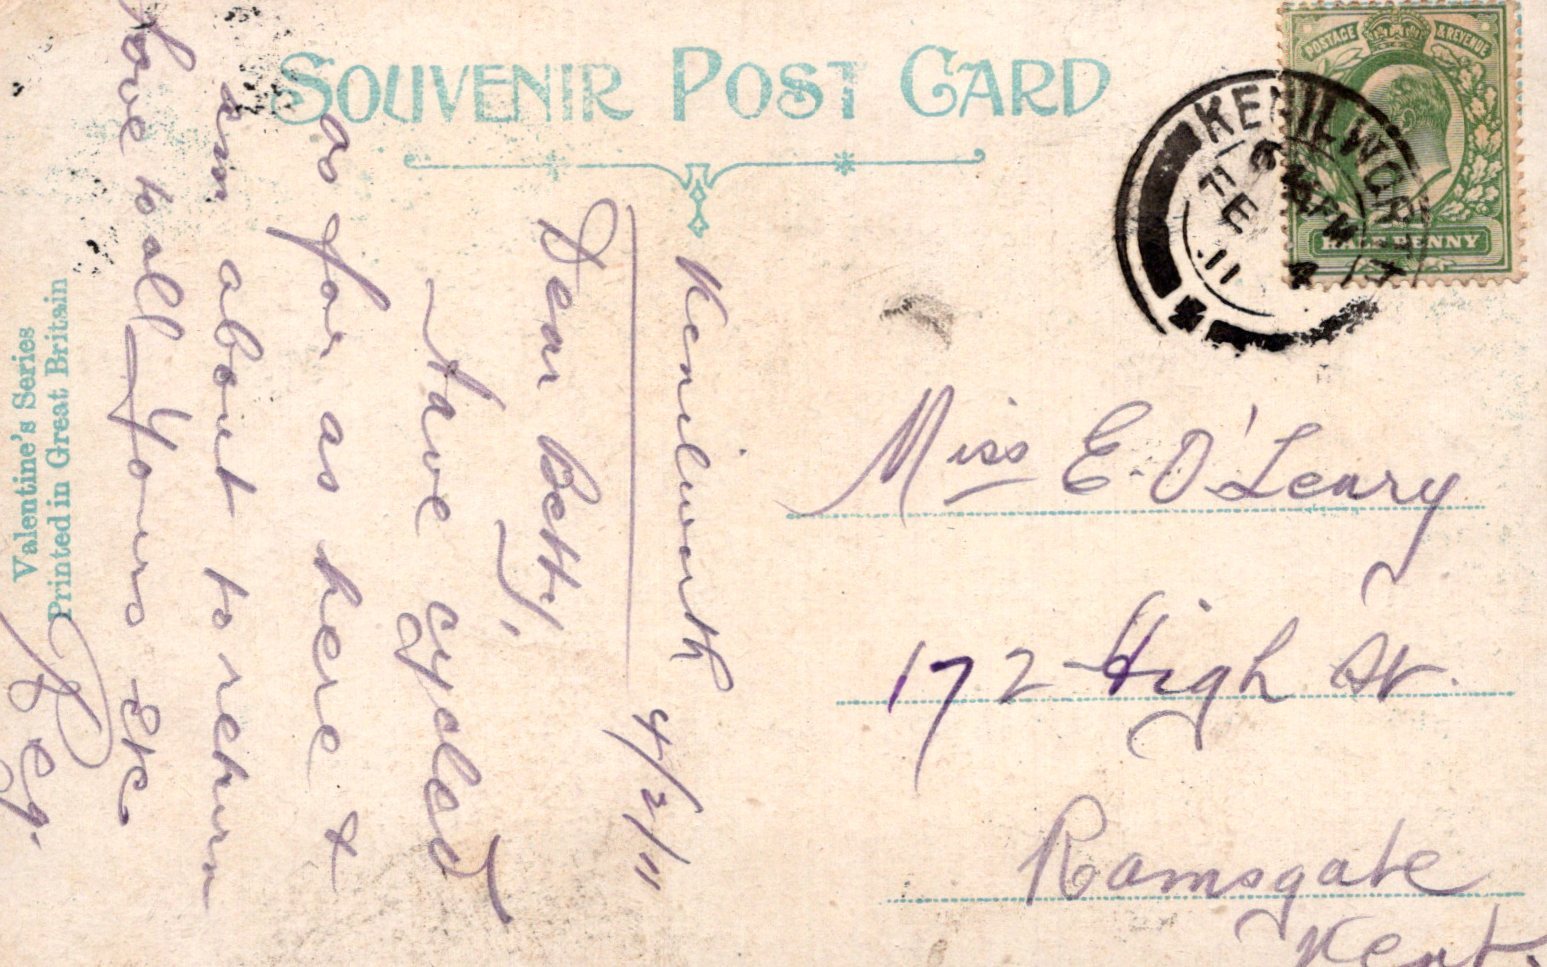 SOUVENIR POST CARD
POSTAGE & REVENUE
HALFPENNY
KENILWORTH
PM
FE 4
11
Kenilworth 4/2/11
Dear Betty,
Have cycled
so far as here &
am about to return
love to all Yours etc
Reg.
Miss E. O'Leary
172 High St.
Ramsgate
Kent.
Valentine's Series
Printed in Great Britain